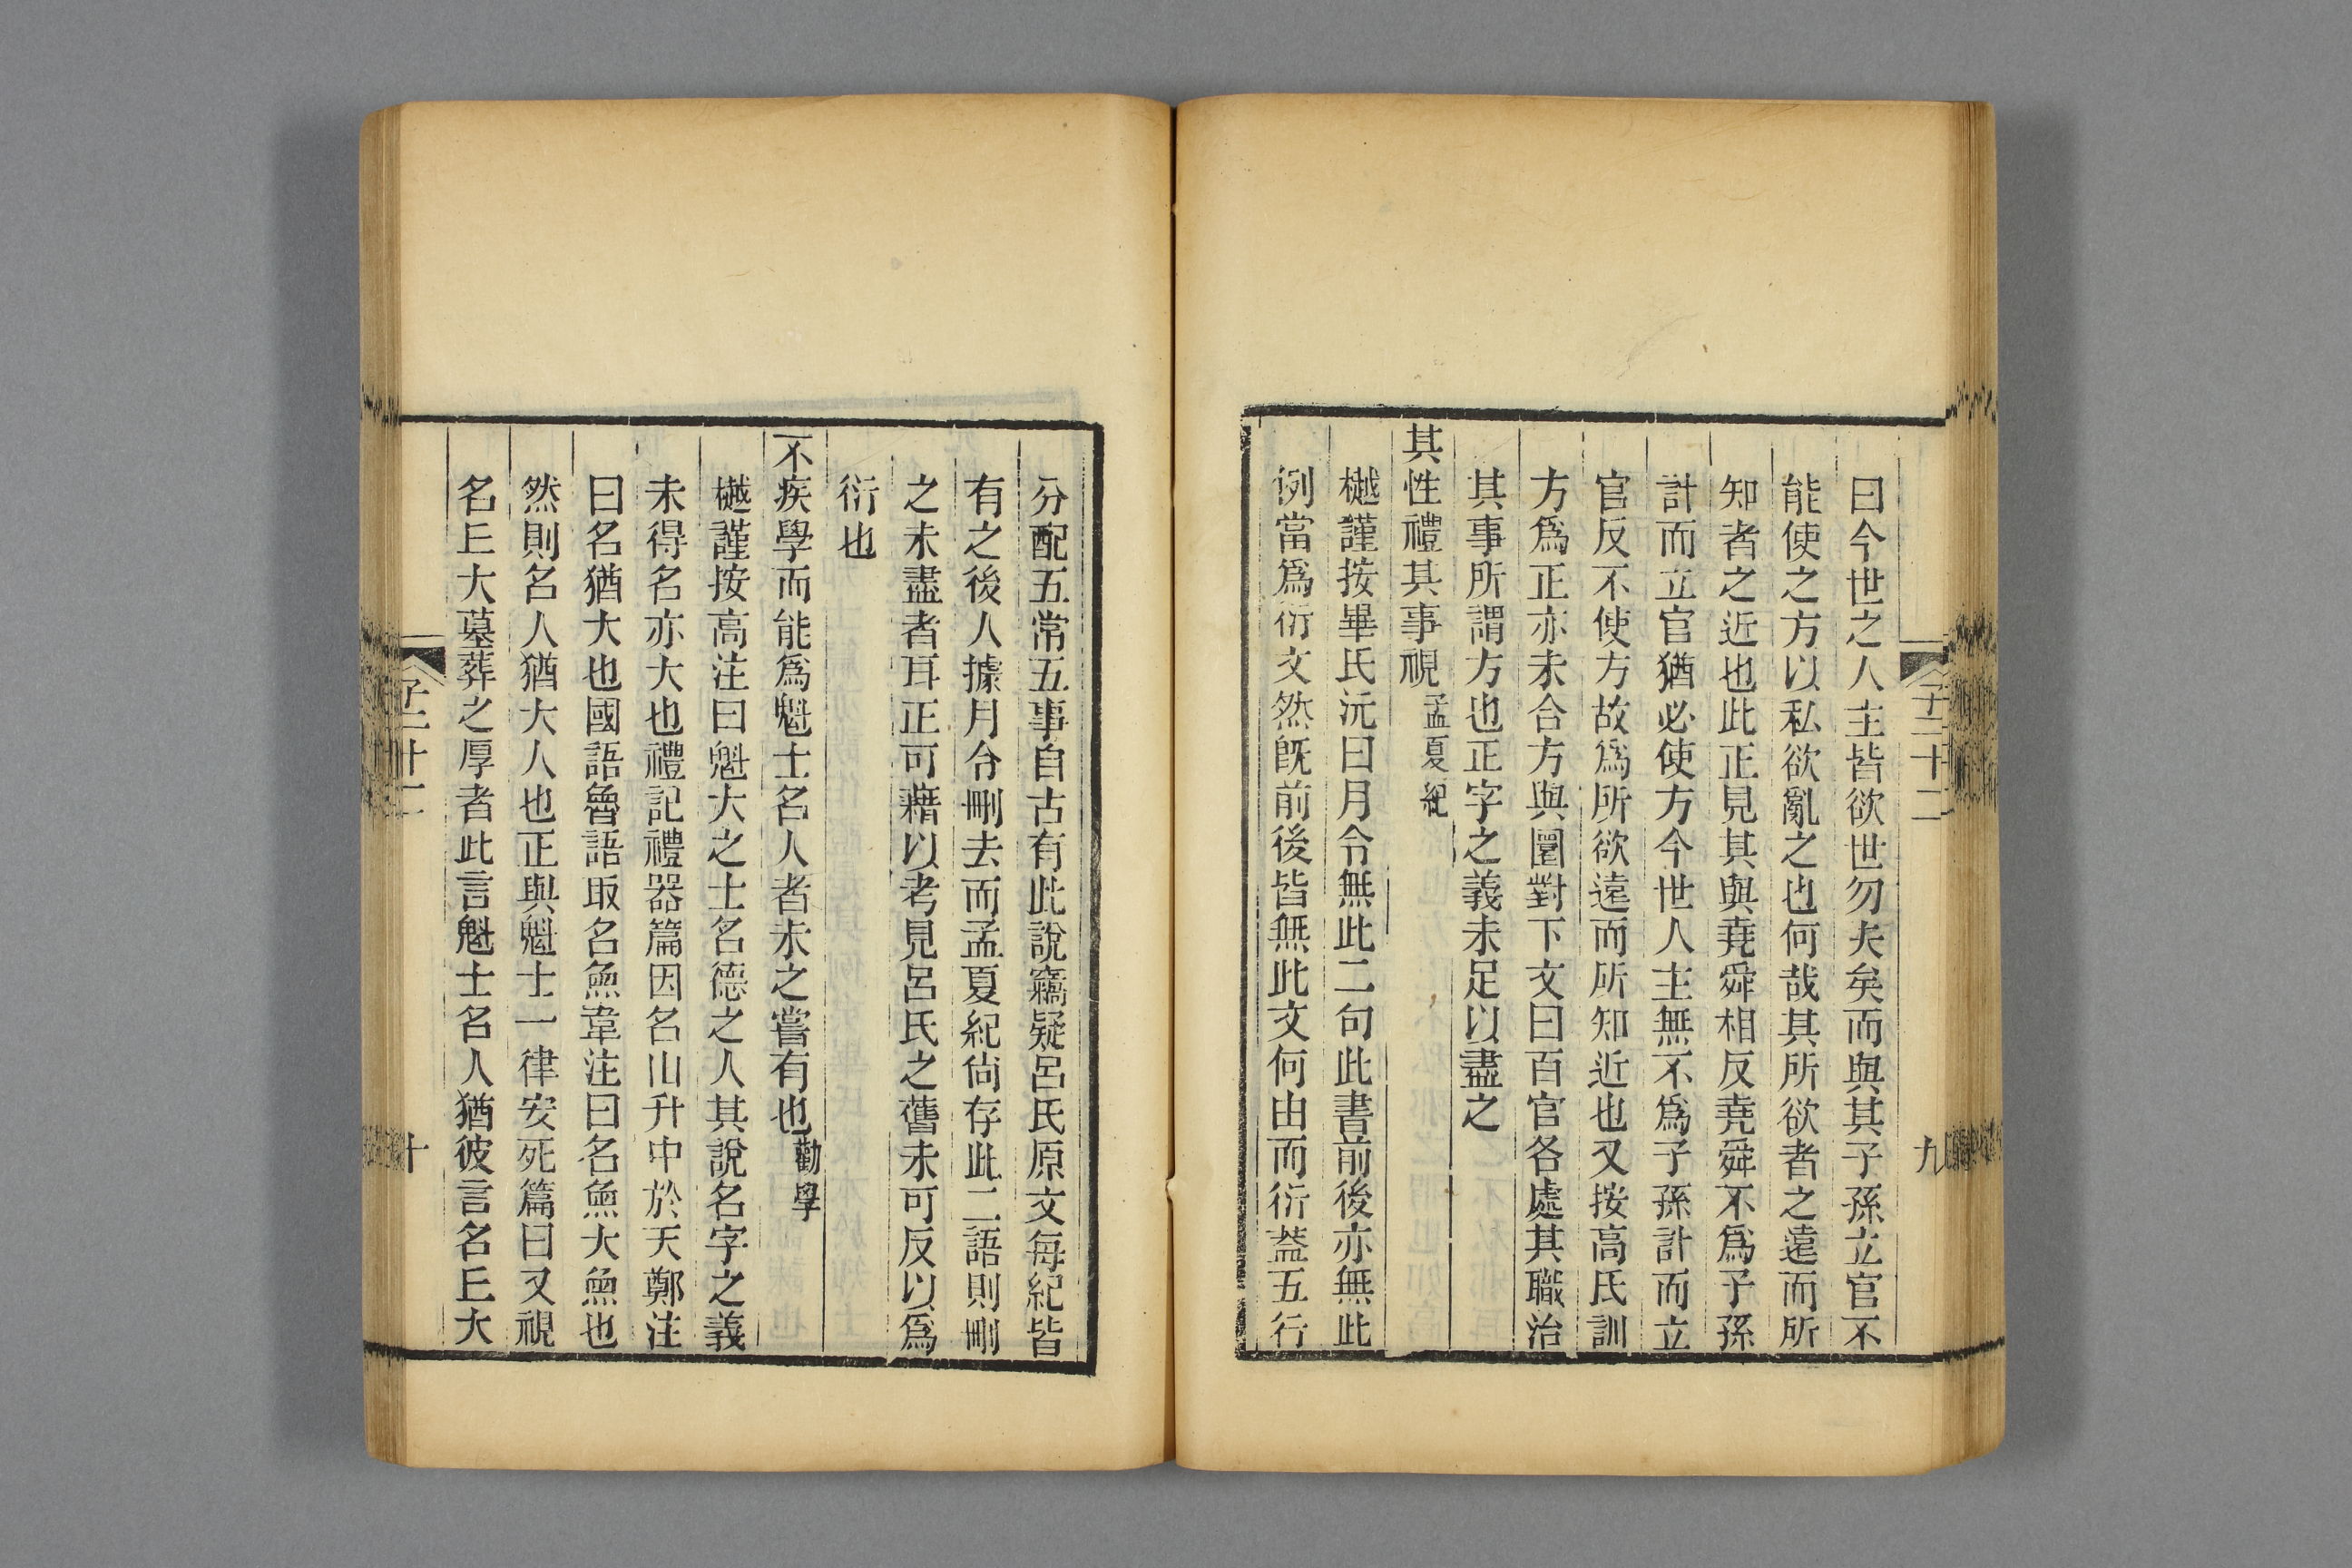 子二十二
九
曰今世之人主皆欲世勿失矣而與其子孫立官不
能使之方以私欲亂之也何哉其所欲者之遠而所
知者之近也此正見其與堯舜相反堯舜不爲子孫
計而立官猶必使方今世人主無不爲子孫計而立
官反不使方故爲所欲遠而所知近也又按高氏訓
方爲正亦未合方與圜對下文曰百官各處其職治
其事所謂方也正字之義未足以盡之
其性禮其事視孟夏紀
樾謹按畢氏沅曰月令無此二句此書前後亦無此
例當爲衍文然旣前後皆無此文何由而衍葢五行
分配五常五事自古有此說竊疑呂氏原文每紀皆
有之後人據月令刪去而孟夏紀尙存此二語則刪
之未盡者耳正可藉以考見呂氏之舊未可反以爲
衍也
不疾學而能爲魁士名人者未之嘗有也勸學
樾謹按高注曰魁大之士名德之人其說名字之義
未得名亦大也禮記禮器篇因名山升中於天鄭注
曰名猶大也國語魯語取名魚韋注曰名魚大魚也
然則名人猶大人也正與魁士一律安死篇曰又視
名丘大墓葬之厚者此言魁士名人猶彼言名丘大
子二十二
十